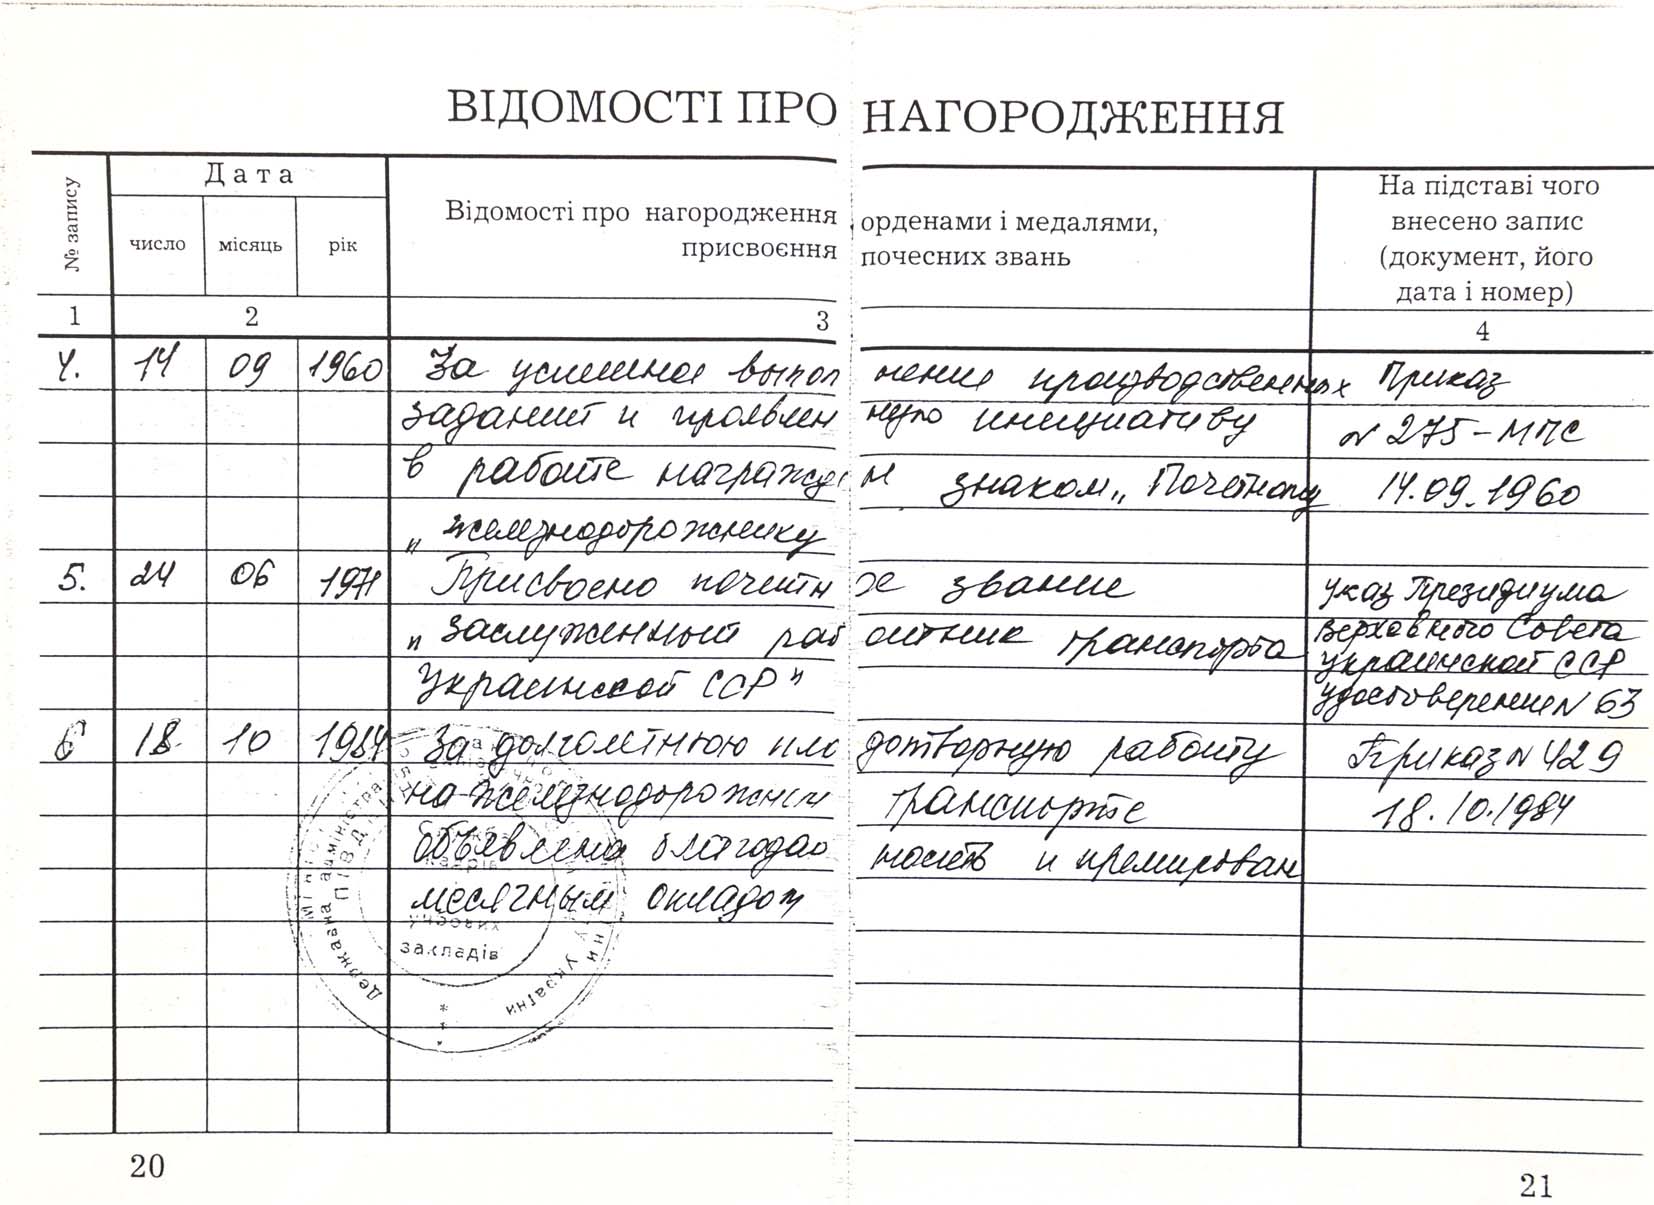 ВІДОМОСТІ ПРО НАГОРОДЖЕННЯ
№ запису
Дата
число місяць рік
Відомості про нагородження орденами і медалями,
присвоєння почесних звань
На підставі чого
внесено запис
(документ, його
дата і номер)
1 2 3 4
4. 14 09 1960 За успешное выполнение производственных Приказ
заданий и проявленную инициативу № 275-МПС
в работе награжден знаком „Почетному 14.09.1960
„железнодорожнику
5. 24 06 1971 Присвоено почетное звание Указ Президиума
„Заслуженный работник транспорта Верховного Совета
Украинской ССР" Украинской ССР
удостоверение № 63
6 18. 10 1984 За долголетнюю плодотворную работу Приказ № 429
на железнодорожном транспорте 18.10.1984
объявлена благодарность и премирован
месячным окладом
Державна адміністра
Україн
учбових
закладів
20
21